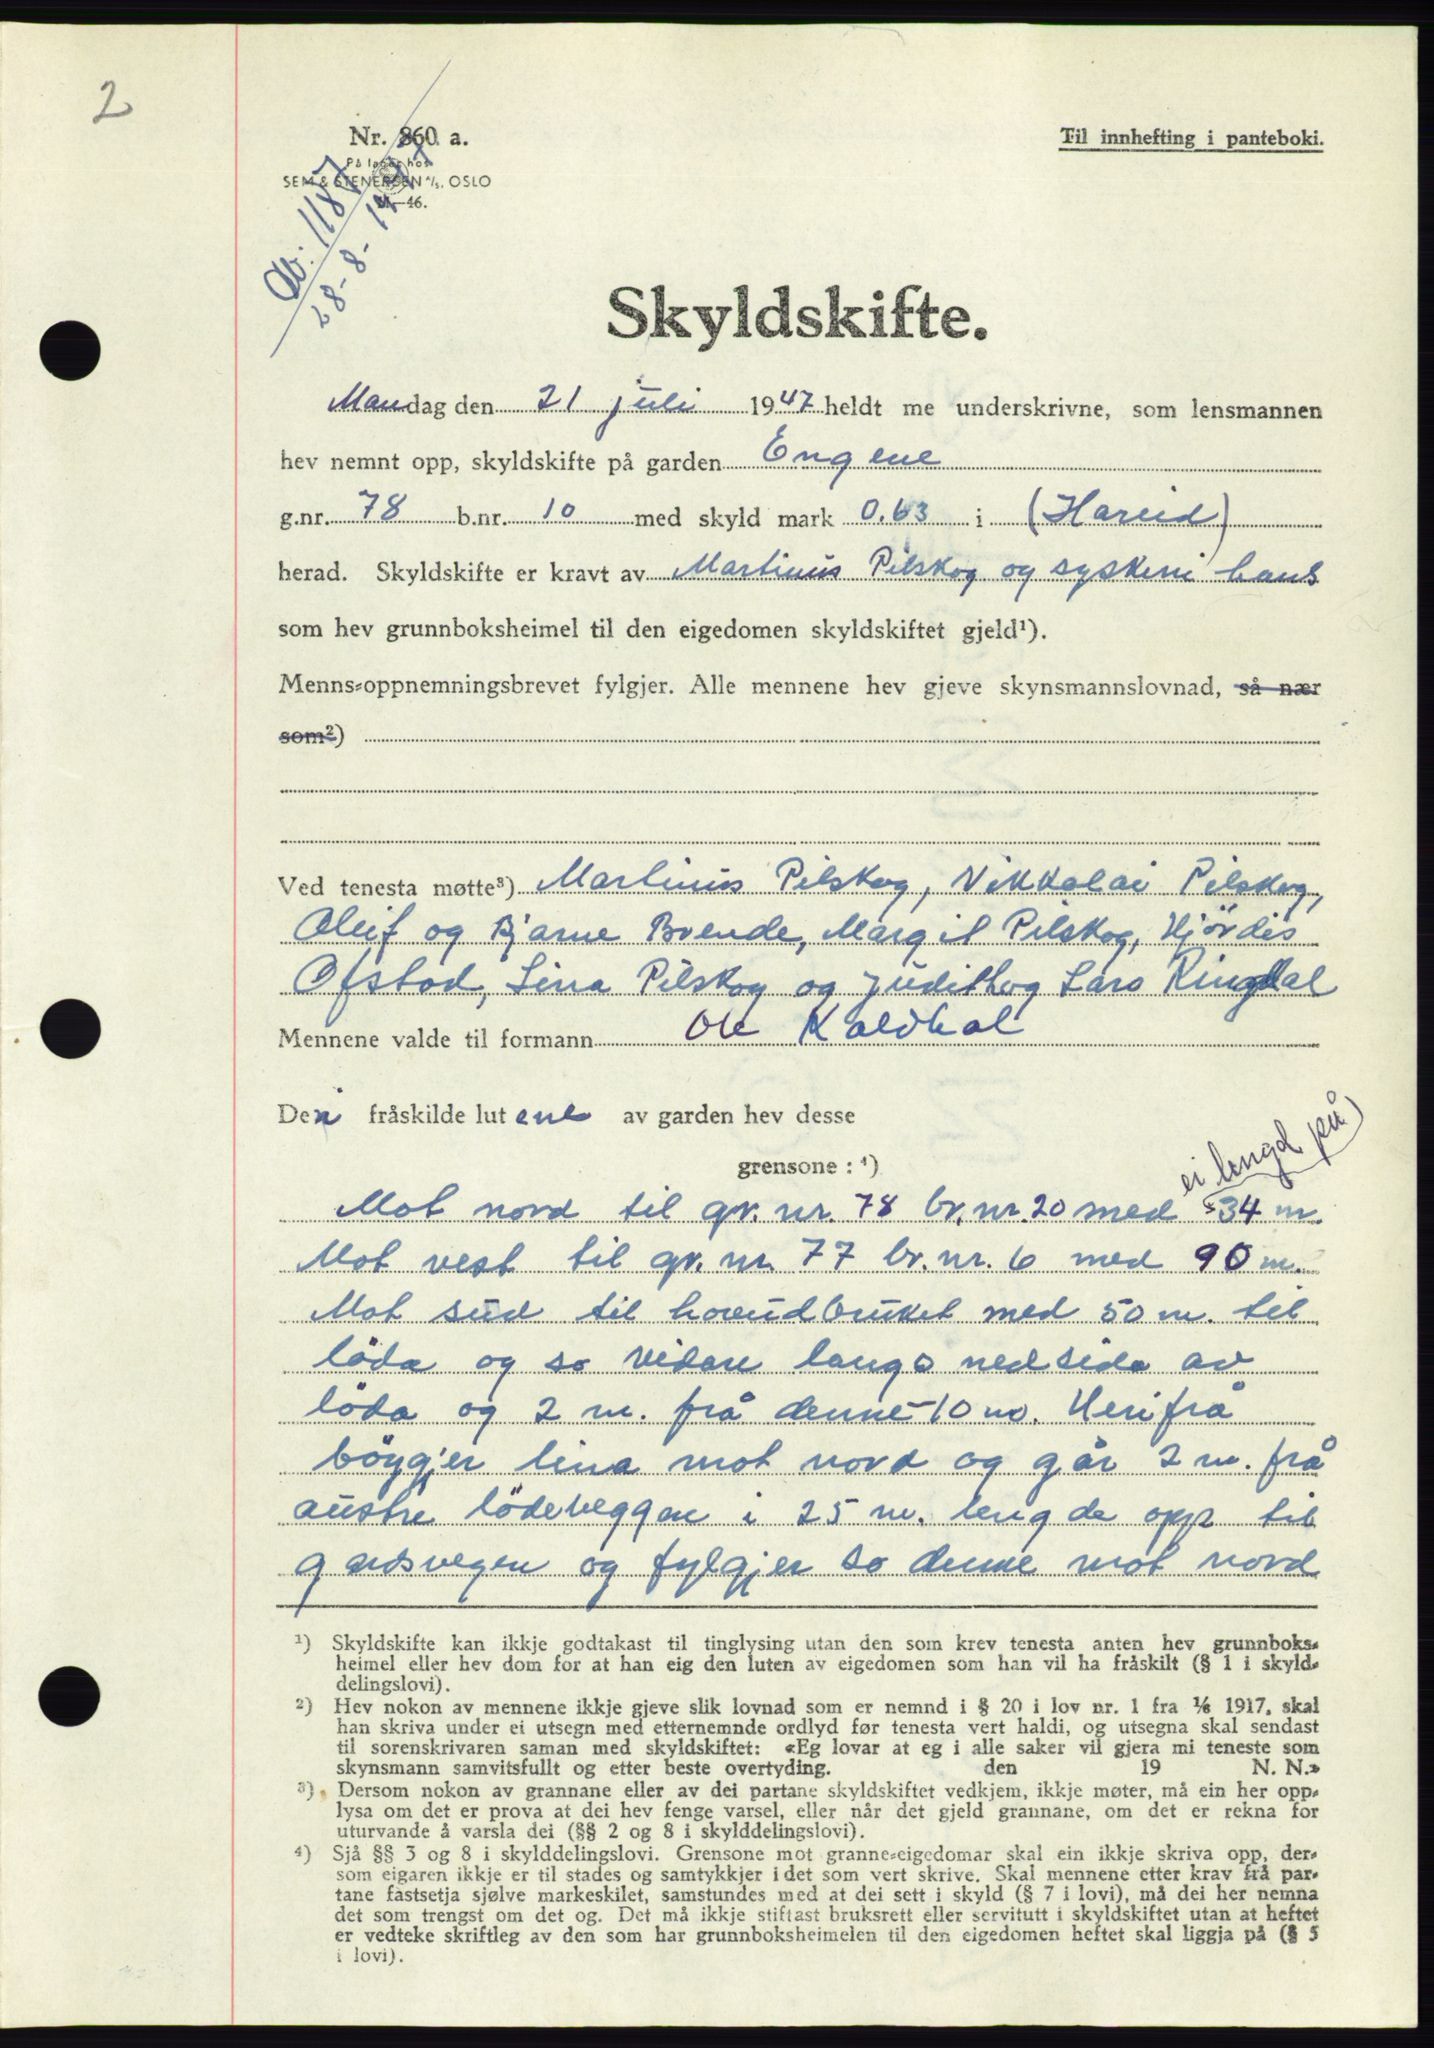 2
Nr. 860 a.
På lager hos
SEM & STENERSEN A/S, OSLO
M—46.
Til innhefting i panteboki.
1187
28-8-1947
Skyldskifte.
Mandag den 21 juli 1947 heldt me underskrivne, som lensmannen
hev nemnt opp, skyldskifte på garden Engene
g.nr. 78 b.nr. 10 med skyld mark 0.63 i (Hareid)
herad. Skyldskifte er kravt av Martinus Pilskog og syskeni hans
som hev grunnboksheimel til den eigedomen skyldskiftet gjeld¹).
Menns-oppnemningsbrevet fylgjer. Alle mennene hev gjeve skynsmannslovnad, så nær
som²)
Ved tenesta møtte³) Martinus Pilskog, Nikkolai Pilskog,
og Bjarne Brende, Margit Pilskog, Hjördis
Ofstad, Lina Pilskog og Judith og Lars Ringdal
Mennene valde til formann Ole Kaldhol
Dei fråskilde lutene av garden hev desse
grensone: ⁴)
ei lengd på
Mot nord til gr. nr. 78 br. nr. 20 med 34 m.
Mot vest til gr. nr. 77 br. nr. 6 med 90 m.
Mot sud til hovudbruket med 50 m. til
löda og so vidare langs nedsida av
löda og 2 m. frå denne 10 m. Herifrå
böygjer lina mot nord og går 2 m. frå
austre lödeveggen i 25 m. lengde opp til
gardsvegen og fylgjer so denne mot nord
¹) Skyldskifte kan ikkje godtakast til tinglysing utan den som krev tenesta anten hev grunnboks-
heimel eller hev dom for at han eig den luten av eigedomen som han vil ha fråskilt (§ 1 i skyld-
delingslovi).
²) Hev nokon av mennene ikkje gjeve slik lovnad som er nemnd i § 20 i lov nr. 1 fra 1/6 1917, skal
han skriva under ei utsegn med etternemnde ordlyd før tenesta vert haldi, og utsegna skal sendast
til sorenskrivaren saman med skyldskiftet: «Eg lovar at eg i alle saker vil gjera mi teneste som
skynsmann samvitsfullt og etter beste overtyding. den 19 N. N.»
³) Dersom nokon av grannane eller av dei partane skyldskiftet vedkjem, ikkje møter, må ein her opp-
lysa om det er prova at dei hev fenge varsel, eller når det gjeld grannane, om det er rekna for
uturvande å varsla dei (§§ 2 og 8 i skylddelingslovi).
⁴) Sjå §§ 3 og 8 i skylddelingslovi. Grensone mot granne-eigedomar skal ein ikkje skriva opp, der-
som eigaren ikkje er til stades og samtykkjer i det som vert skrive. Skal mennene etter krav frå par-
tane fastsetja sjølve markeskilet, samstundes med at dei sett i skyld (§ 7 i lovi), må dei her nemna
det som trengst om det og. Det må ikkje stiftast bruksrett eller servitutt i skyldskiftet utan at heftet
er vedteke skriftleg av den som har grunnboksheimelen til den eigedomen heftet skal liggja på (§ 5
i lovi).